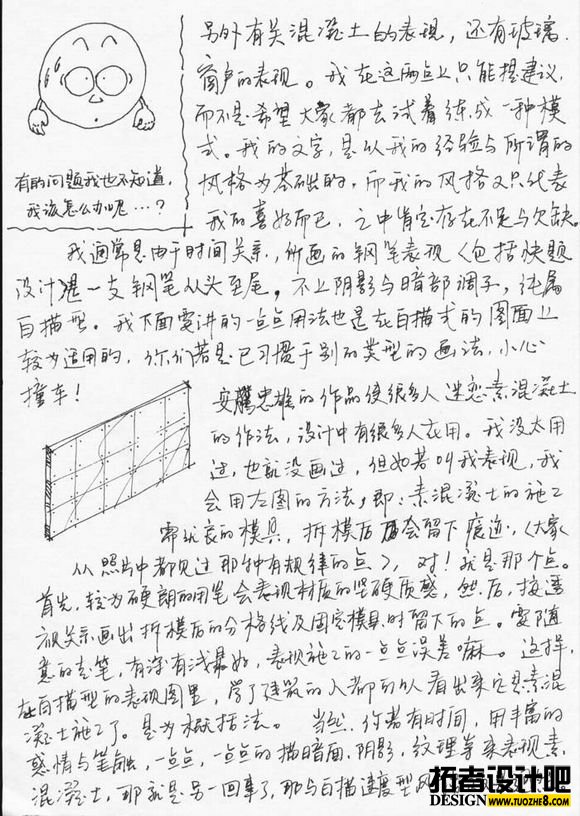 另外有关混凝土的表现，还有玻璃
窗户的表现。我在这两点上只能提建议，
而不是希望大家都去试着练成一种模
式。我的文字，是以我的经验与所谓的
风格为基础的，而我的风格又只代表
我的喜好而已，之中肯定存在不足与欠缺。
有的问题我也不知道，
我该怎么办呢…？
我通常是由于时间关系，所画的钢笔表现（包括快题
设计）是一支钢笔从头至尾。不上阴影与暗部调子，纯属
白描型。我下面要讲的一点点用法也是在白描式的图面上
较为适用的，你们若是已习惯于别的类型的画法，小心
撞车！
安藤忠雄的作品使很多人迷恋素混凝土
的作法，设计中有很多人在用。我没太用
过，也就没画过，但如若叫我表现，我
会用左图的方法，即：素混凝土的施工
需优良的模具，拆模后会留下痕迹，（大家
从照片中都见过那种有规律的点），对！就是那个点。
首先，较为硬朗的用笔会表现材质的坚硬质感，然后，按透
视关系画出拆模后的分格线及固定模具时留下的点。要随
意的走笔，有深有浅最好，表现施工的一点点误差嘛。这样，
在白描型的表现图里，学了建筑的人都可以看出来它是素混
凝土施工了。是为概括法。 当然，你若有时间，用丰富的
感情与笔触，一点点，一点点的描暗面，阴影，纹理等来表现素
混凝土，那就是另一回事了，那与白描速度型风
拓者设计吧
DESIGN WWW.TUOZHE8.COM